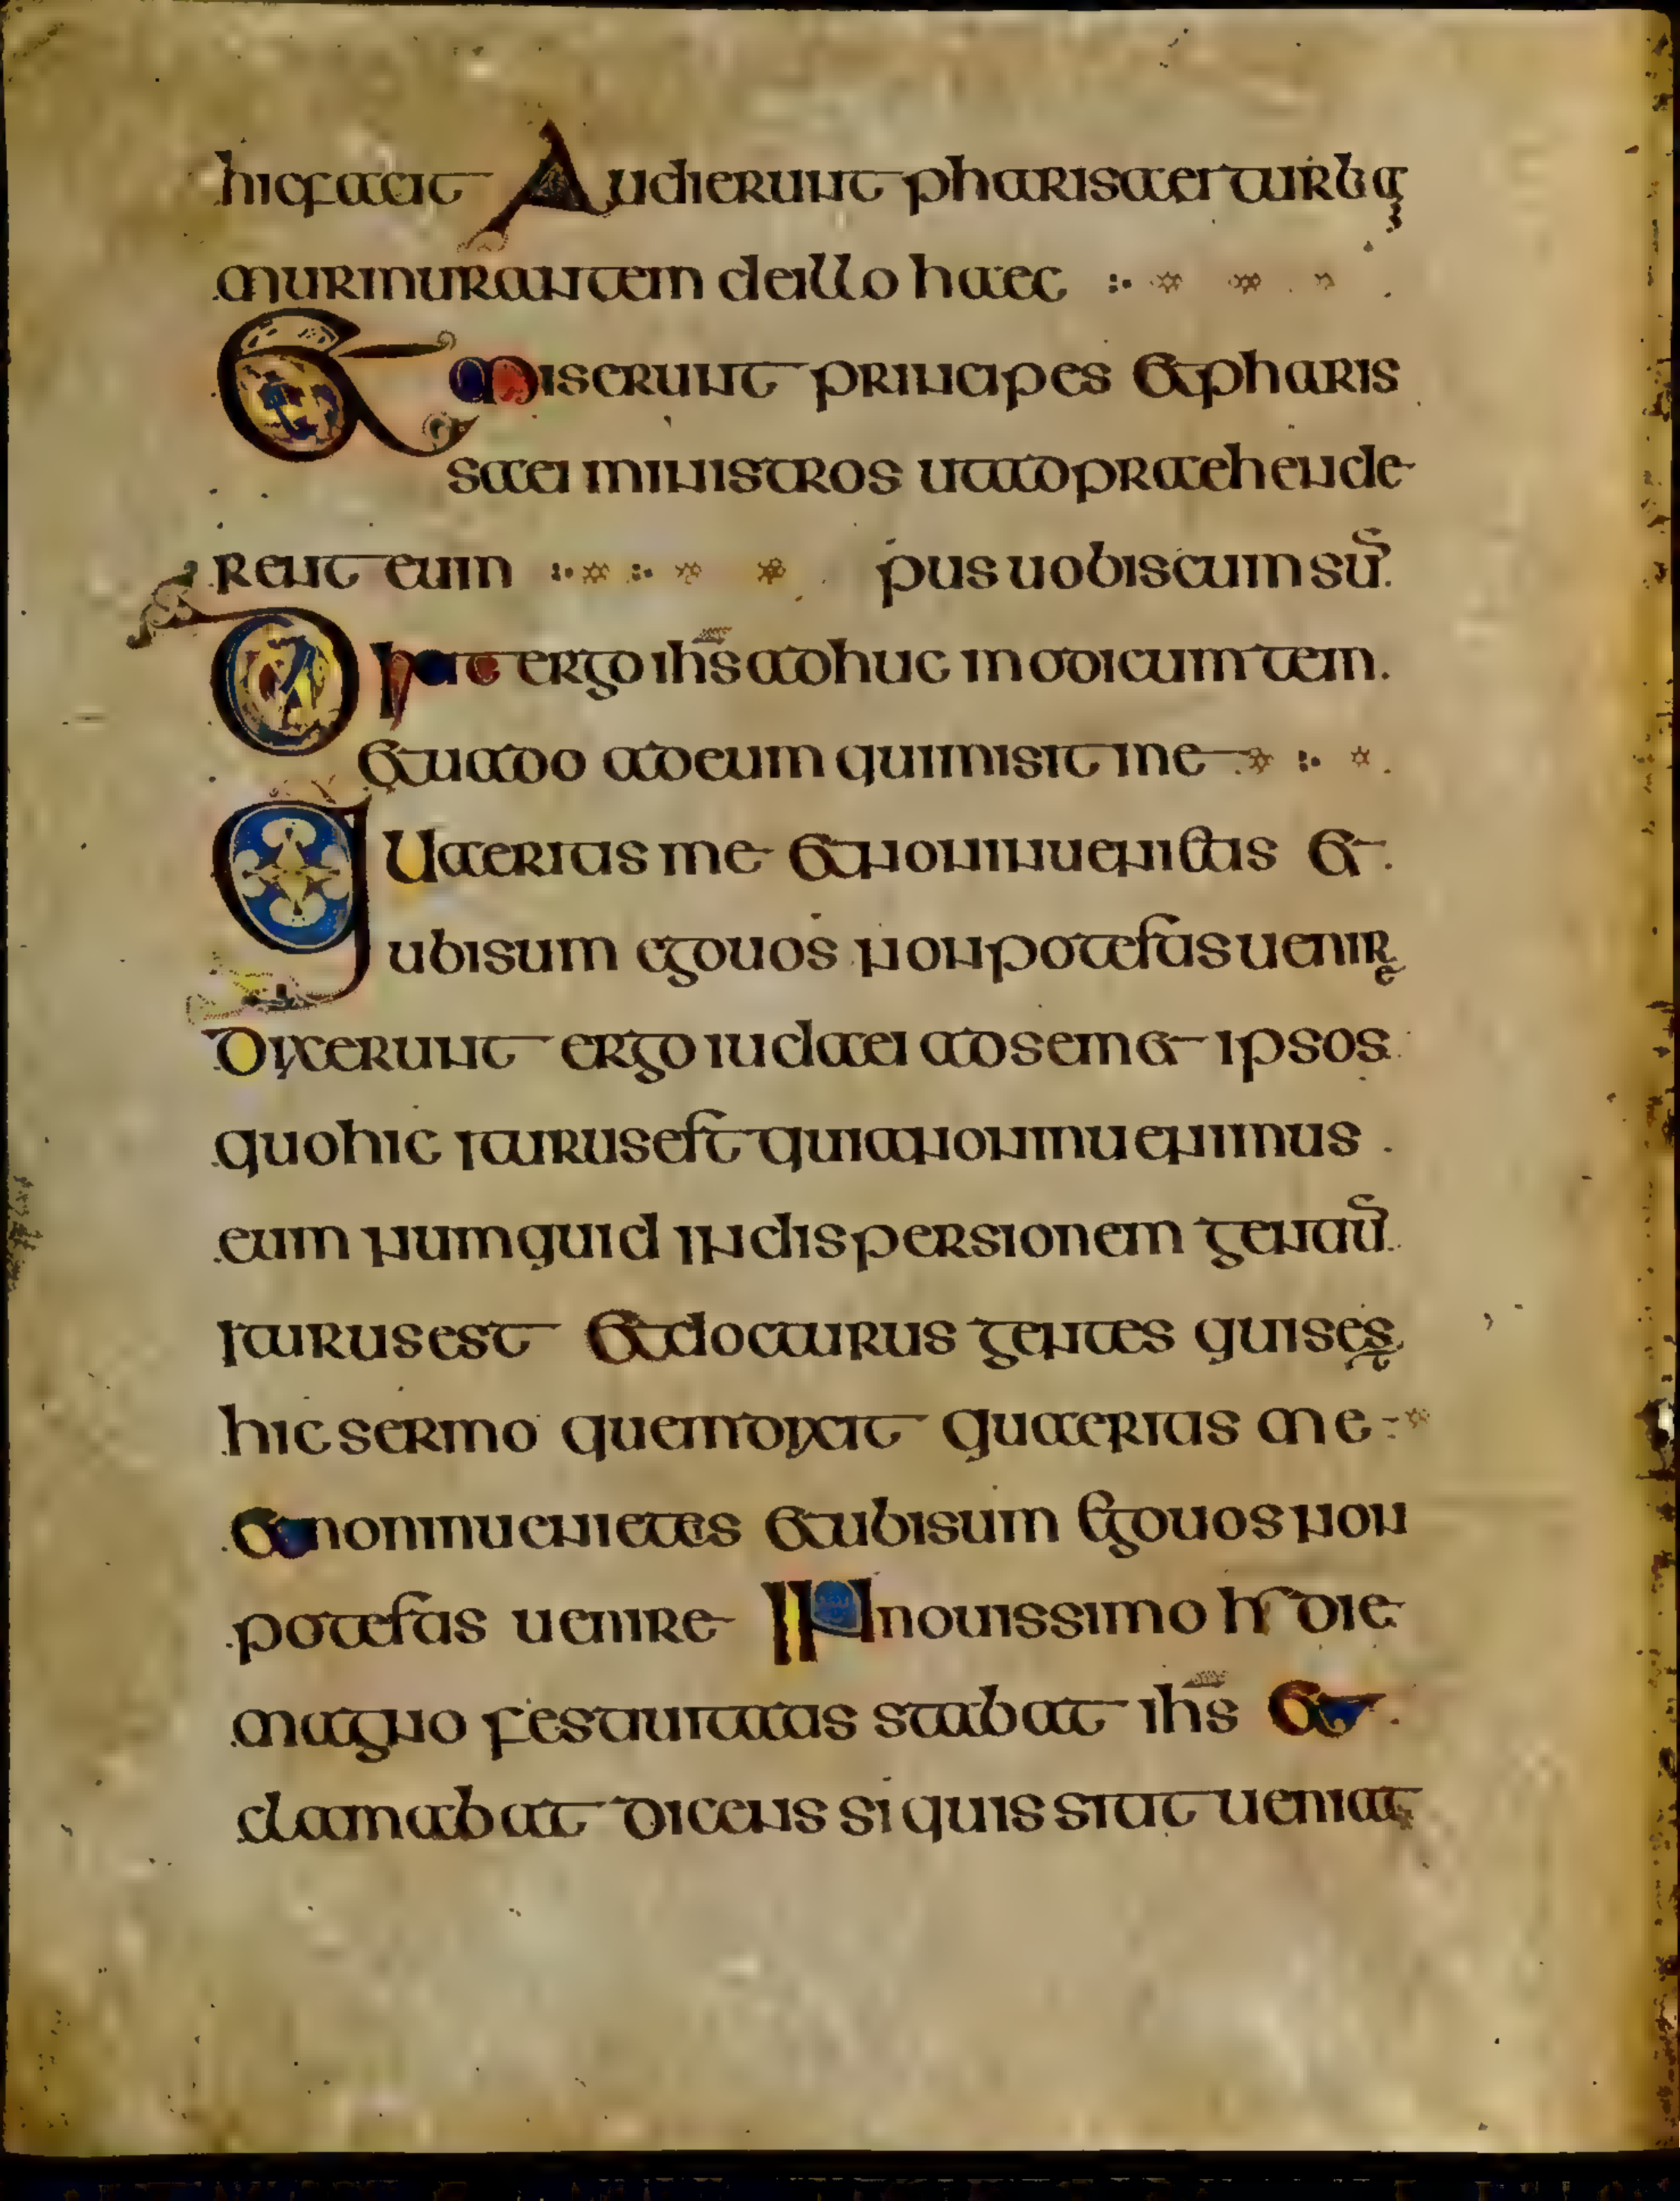 hic facit Audierunt pharisaei turbā
murmurantem de illo haec
Et miserunt principes et pharis
saei ministros ut adpraehende
rent eum pus uobiscum sū
Dixit ergo ihs adhuc modicum tem
et uado ad eum qui misit me
Quaeritis me et non inuenietis et
ubi sum ego uos non potestis uenire
Dixerunt ergo iudaei ad semet ipsos
quo hic iturus est quia non inuenimus
eum numquid in dispersionem gentiū
iturus est et docturus gentes quis est
hic sermo quem dixit quaeritis me
et non inuenietes et ubi sum ego uos non
potestis uenire In nouissimo h die
magno festiuitatis stabat ihs et
clamabat dicens si quis sitit ueniat